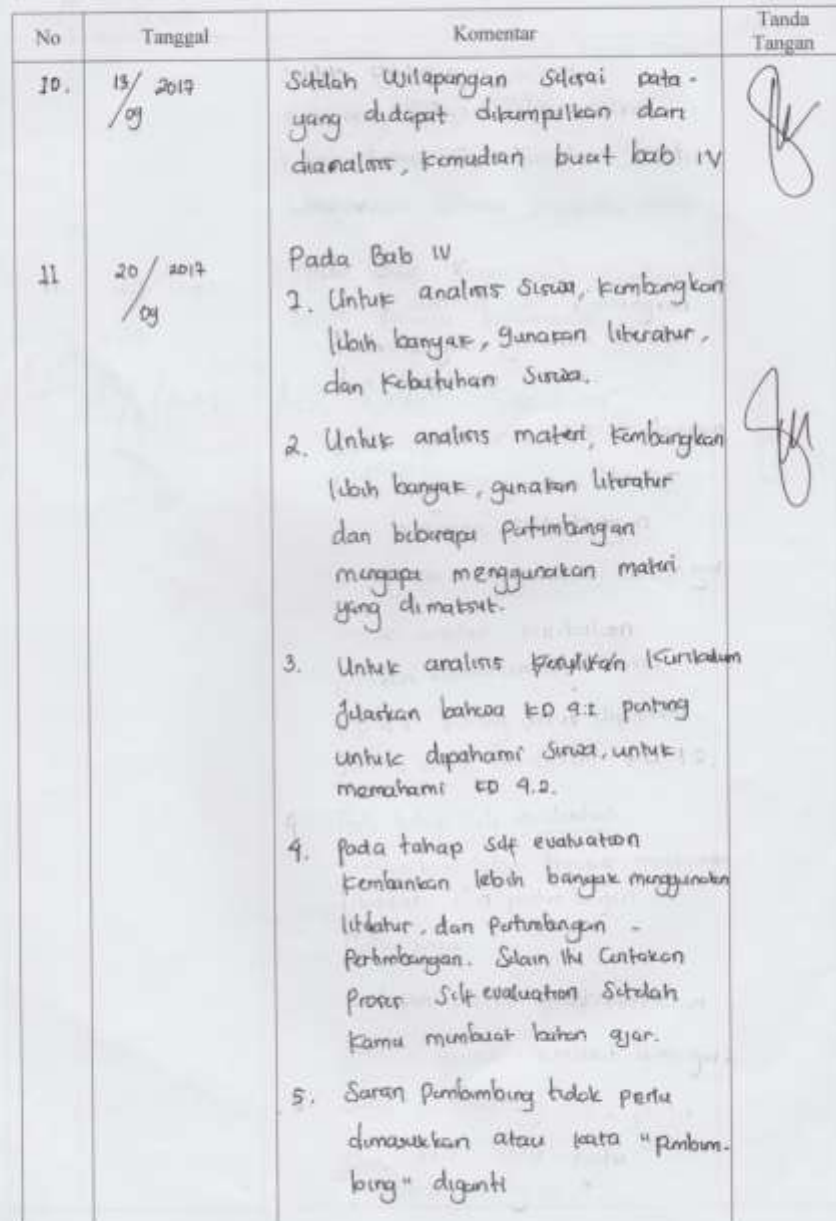 No Tanggal Komentar Tanda Tangan
10. 13/09 2017 Setelah Uji lapangan selesai data -
yang didapat dikumpulkan dan
dianalisis, kemudian buat bab IV
11 20/09 2017 Pada Bab IV
1. Untuk analisis siswa, kembangkan
lebih banyak, gunakan literatur,
dan kebutuhan siswa.
2. Untuk analisis materi, kembangkan
lebih banyak, gunakan literatur
dan beberapa pertimbangan
mengapa menggunakan materi
yang dimaksut.
3. Untuk analisis kurikulum
Jelaskan bahwa KD 4.1 penting
untuk dipahami siswa, untuk
memahami KD 4.2.
4. Pada tahap self evaluation
kembankan lebih banyak menggunakan
literatur, dan Pertimbangan -
Pertimbangan. Selain itu Cantokan
Proses Self evaluation Setelah
kamu membuat bahan ajar.
5. Saran Pembimbing tidak perlu
dimasukkan atau kata "pembim-
bing" diganti